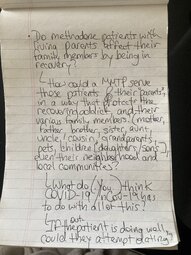 • Do methadone patients with
living parents affect their
family members by being in
recovery?
↳ How could a MMTP serve
these patients & their parents,
in a way that protects the
recovering addict, and their
various family members: mother,
father, brother, sister, aunt,
uncle, cousin, grandparents,
pets, children (daughter/son),
even their neighborhood and
local communities?
↳ What do (you) think
COVID-19/nCov-19 has
to do with all of this?
↳ If the patient is doing well,
could they attempt dating?